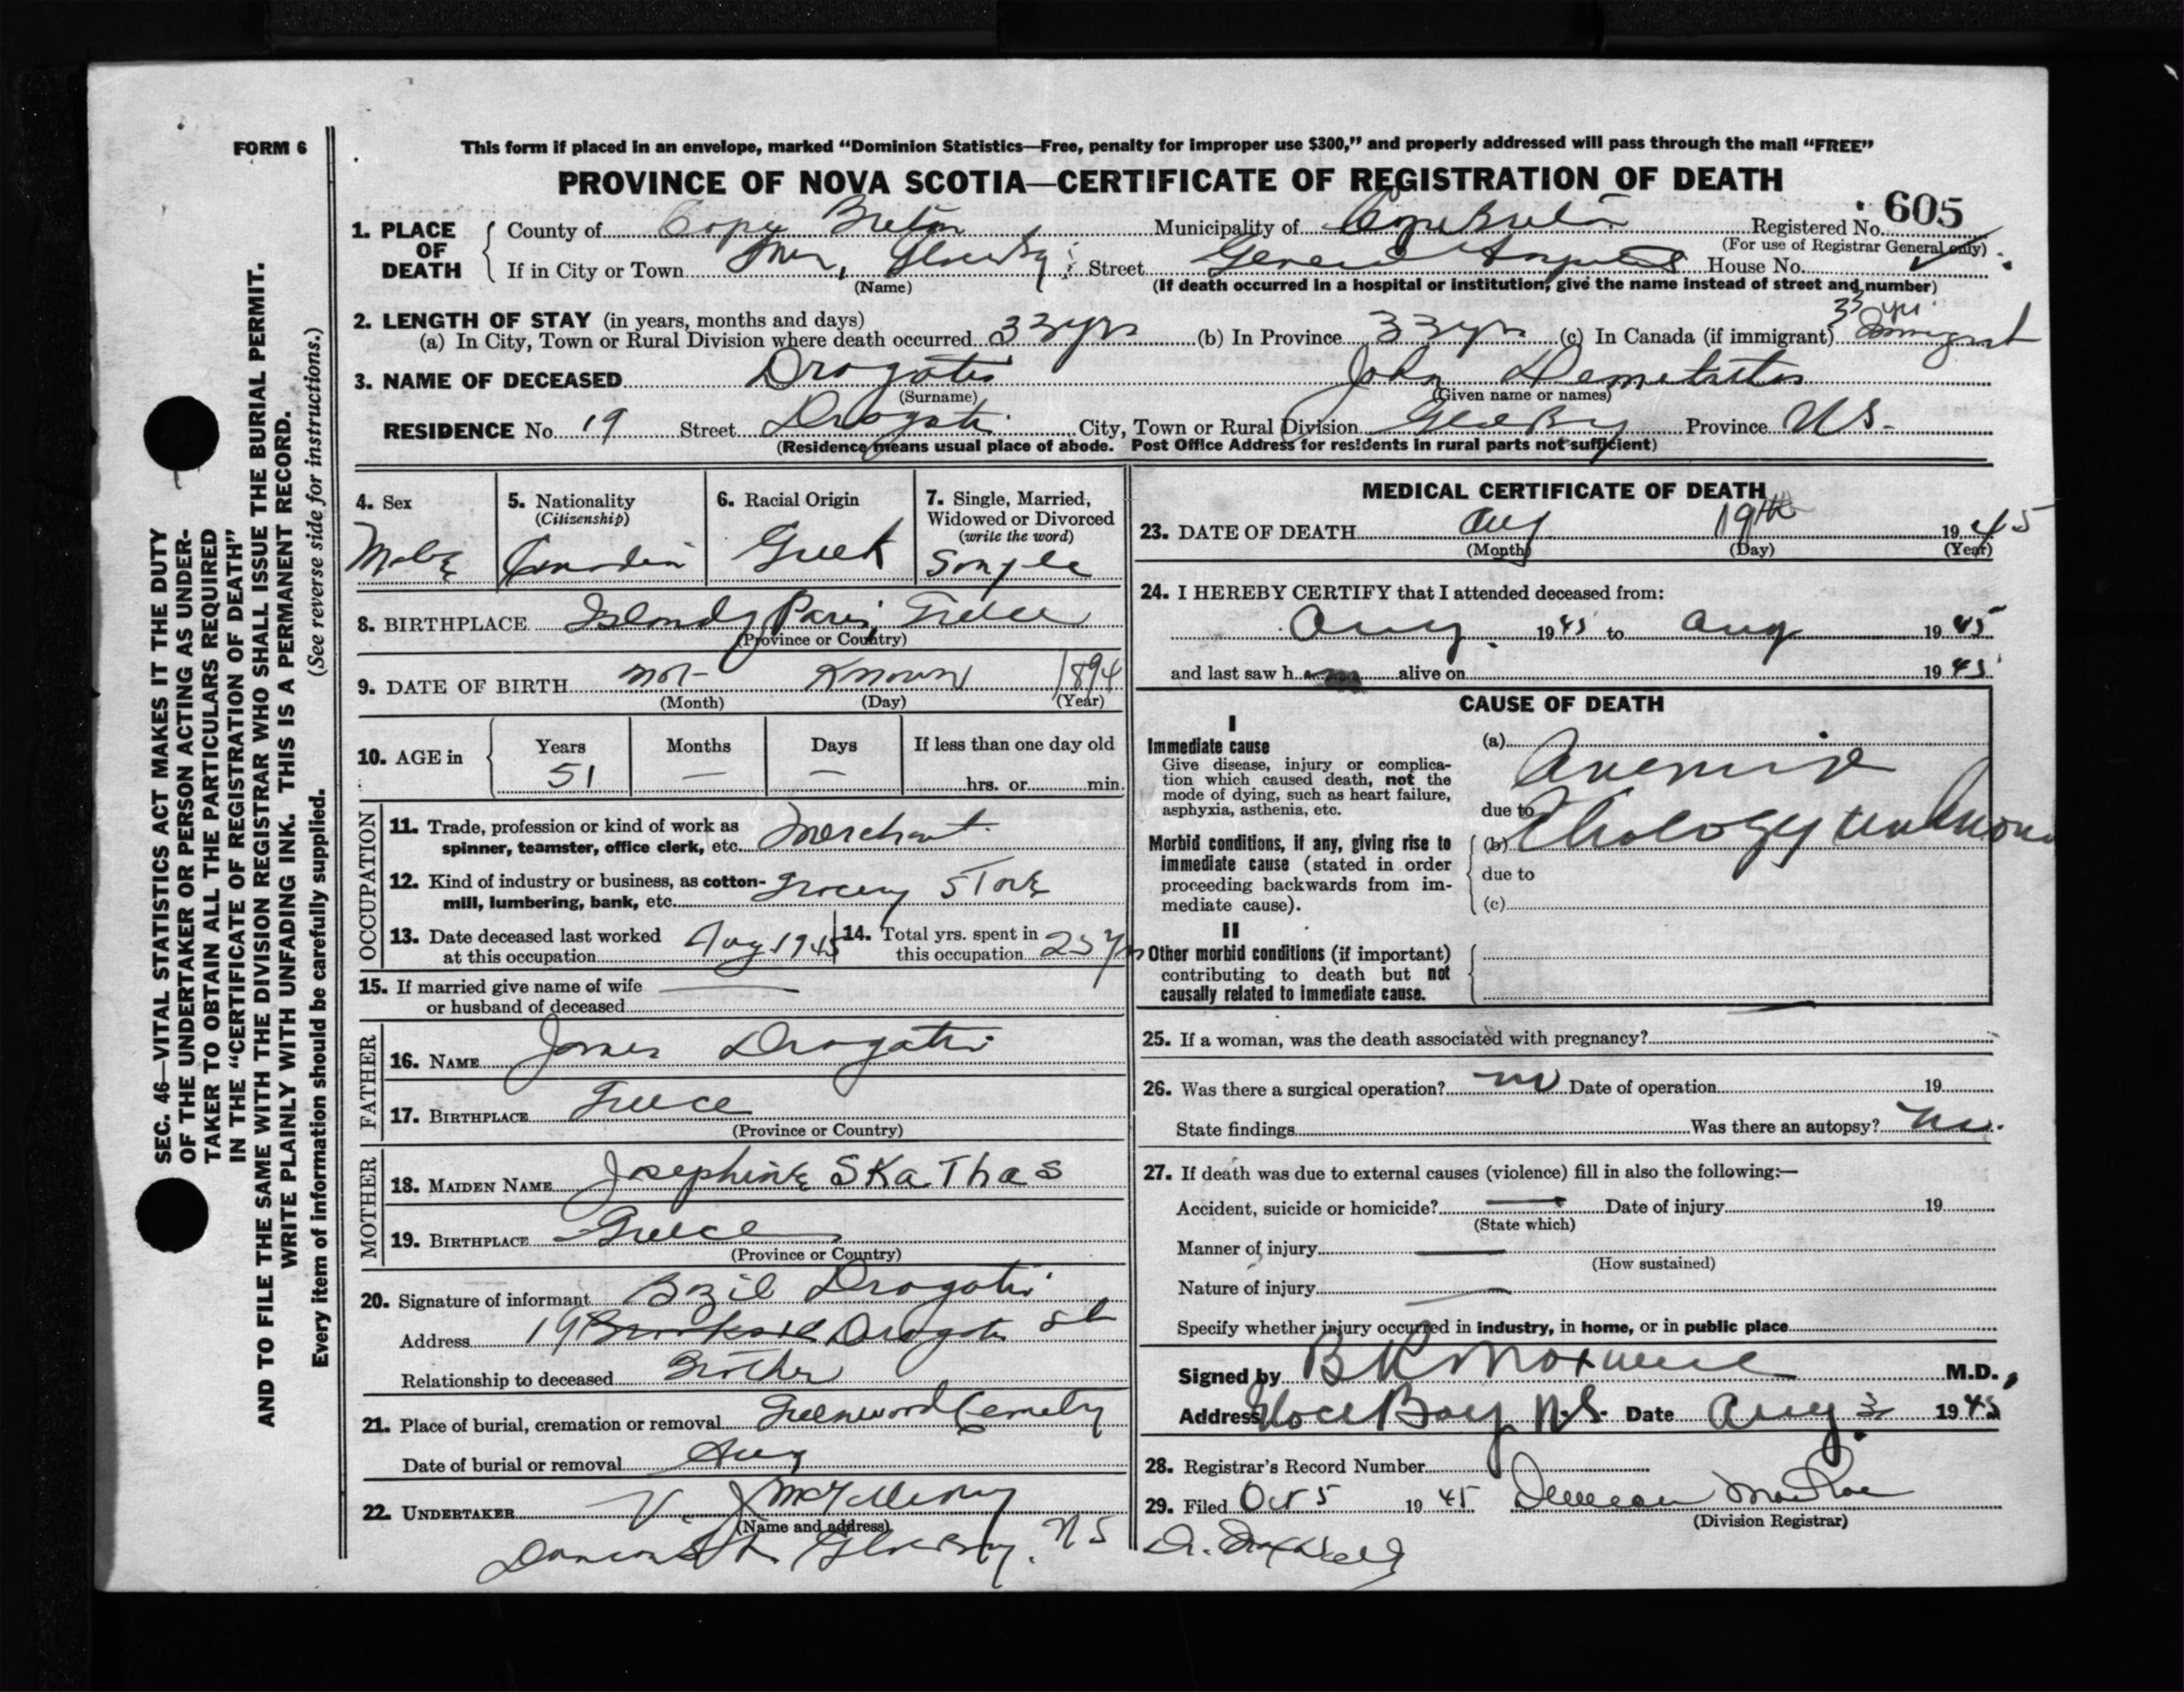 FORM 6
This form if placed in an envelope, marked “Dominion Statistics—Free, penalty for improper use $300,” and properly addressed will pass through the mail “FREE”
PROVINCE OF NOVA SCOTIA—CERTIFICATE OF REGISTRATION OF DEATH
605
1. PLACE OF DEATH
County of Cape Breton Municipality of Cape Breton Registered No.
(For use of Registrar General only)
If in City or Town Street General Hospital House No.
(Name)
(If death occurred in a hospital or institution, give the name instead of street and number)
2. LENGTH OF STAY (in years, months and days)
(a) In City, Town or Rural Division where death occurred 33 yrs (b) In Province 33 yrs (c) In Canada (if immigrant) 33 yrs Immigrant
3. NAME OF DECEASED Dragatis John
(Surname) (Given name or names)
RESIDENCE No. 19 Street Dragatis City, Town or Rural Division Glace Bay Province N.S.
(Residence means usual place of abode. Post Office Address for residents in rural parts not sufficient)
4. Sex
Male
5. Nationality
(Citizenship)
Canadian
6. Racial Origin
Greek
7. Single, Married,
Widowed or Divorced
(write the word)
Single
8. BIRTHPLACE Island Paris, Greece
(Province or Country)
9. DATE OF BIRTH not Known 1894
(Month) (Day) (Year)
10. AGE in
Years Months Days If less than one day old
51 — — hrs. or min.
OCCUPATION
11. Trade, profession or kind of work as
spinner, teamster, office clerk, etc. Merchant
12. Kind of industry or business, as cotton-
mill, lumbering, bank, etc. Grocery Store
13. Date deceased last worked
at this occupation Aug 1945
14. Total yrs. spent in
this occupation 25 yrs
15. If married give name of wife
or husband of deceased —
FATHER
16. NAME James Dragatis
17. BIRTHPLACE Greece
(Province or Country)
MOTHER
18. MAIDEN NAME Josephine SKaThas
19. BIRTHPLACE Greece
(Province or Country)
20. Signature of informant Bazil Dragatis
Address 19 Dragatis St
Relationship to deceased Brother
21. Place of burial, cremation or removal Greenwood Cemetery
Date of burial or removal Aug
22. UNDERTAKER V. J. McGillivray
(Name and address)
Glace Bay, N S
MEDICAL CERTIFICATE OF DEATH
23. DATE OF DEATH Aug 19th 1945
(Month) (Day) (Year)
24. I HEREBY CERTIFY that I attended deceased from:
Aug. 1945 to Aug 1945
and last saw h im alive on 1945
CAUSE OF DEATH
I
Immediate cause
Give disease, injury or complica-
tion which caused death, not the
mode of dying, such as heart failure,
asphyxia, asthenia, etc.
(a) Anemia
due to
Morbid conditions, if any, giving rise to
immediate cause (stated in order
proceeding backwards from im-
mediate cause).
(b) Etiology unknown
due to
(c)
II
Other morbid conditions (if important)
contributing to death but not
causally related to immediate cause.
25. If a woman, was the death associated with pregnancy?
26. Was there a surgical operation? no Date of operation 19
State findings Was there an autopsy? No.
27. If death was due to external causes (violence) fill in also the following:—
Accident, suicide or homicide? — Date of injury 19
(State which)
Manner of injury —
(How sustained)
Nature of injury —
Specify whether injury occurred in industry, in home, or in public place
Signed by M.D.
Address Glace Bay N.S. Date Aug 1945
28. Registrar's Record Number
29. Filed Oct 5 1945 Duncan MacRae
(Division Registrar)
SEC. 46—VITAL STATISTICS ACT MAKES IT THE DUTY
OF THE UNDERTAKER OR PERSON ACTING AS UNDER-
TAKER TO OBTAIN ALL THE PARTICULARS REQUIRED
IN THE “CERTIFICATE OF REGISTRATION OF DEATH”
AND TO FILE THE SAME WITH THE DIVISION REGISTRAR WHO SHALL ISSUE THE BURIAL PERMIT.
WRITE PLAINLY WITH UNFADING INK. THIS IS A PERMANENT RECORD.
Every item of information should be carefully supplied. (See reverse side for instructions.)